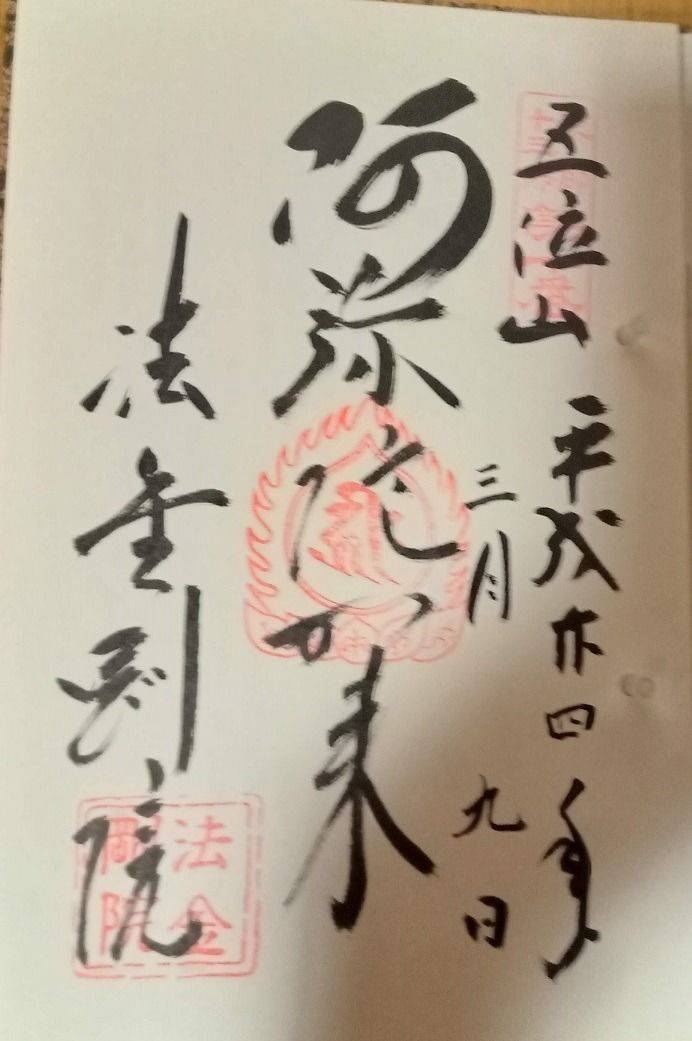 五位山
平成廿四年
三月
九日
阿弥陀如来
法金剛院
法金
剛院